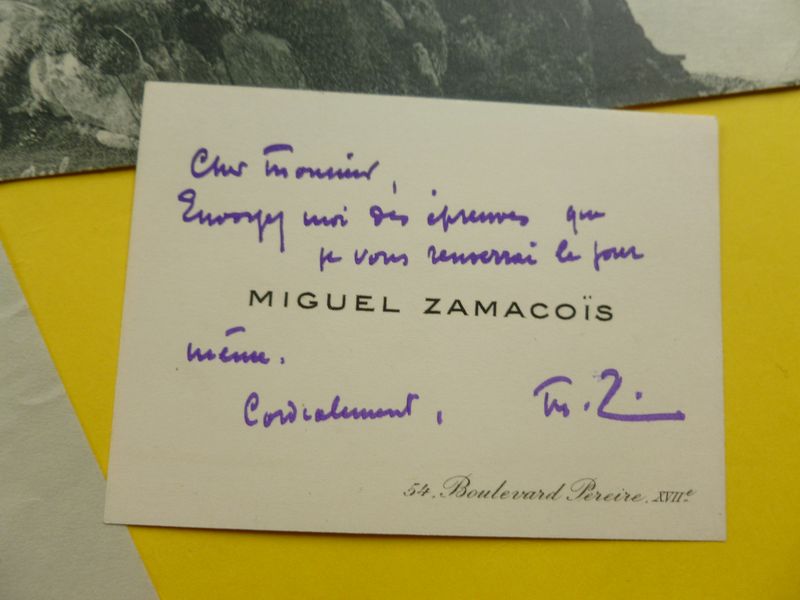 Cher Monsieur,
Envoyez moi des épreuves que
je vous renverrai le jour
MIGUEL ZAMACOÏS
même.
Cordialement, M. Z.
54. Boulevard Pereire. XVIIe